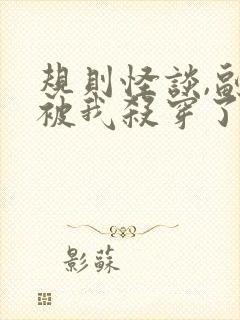 規則怪談,副
被我殺穿了
影蘇